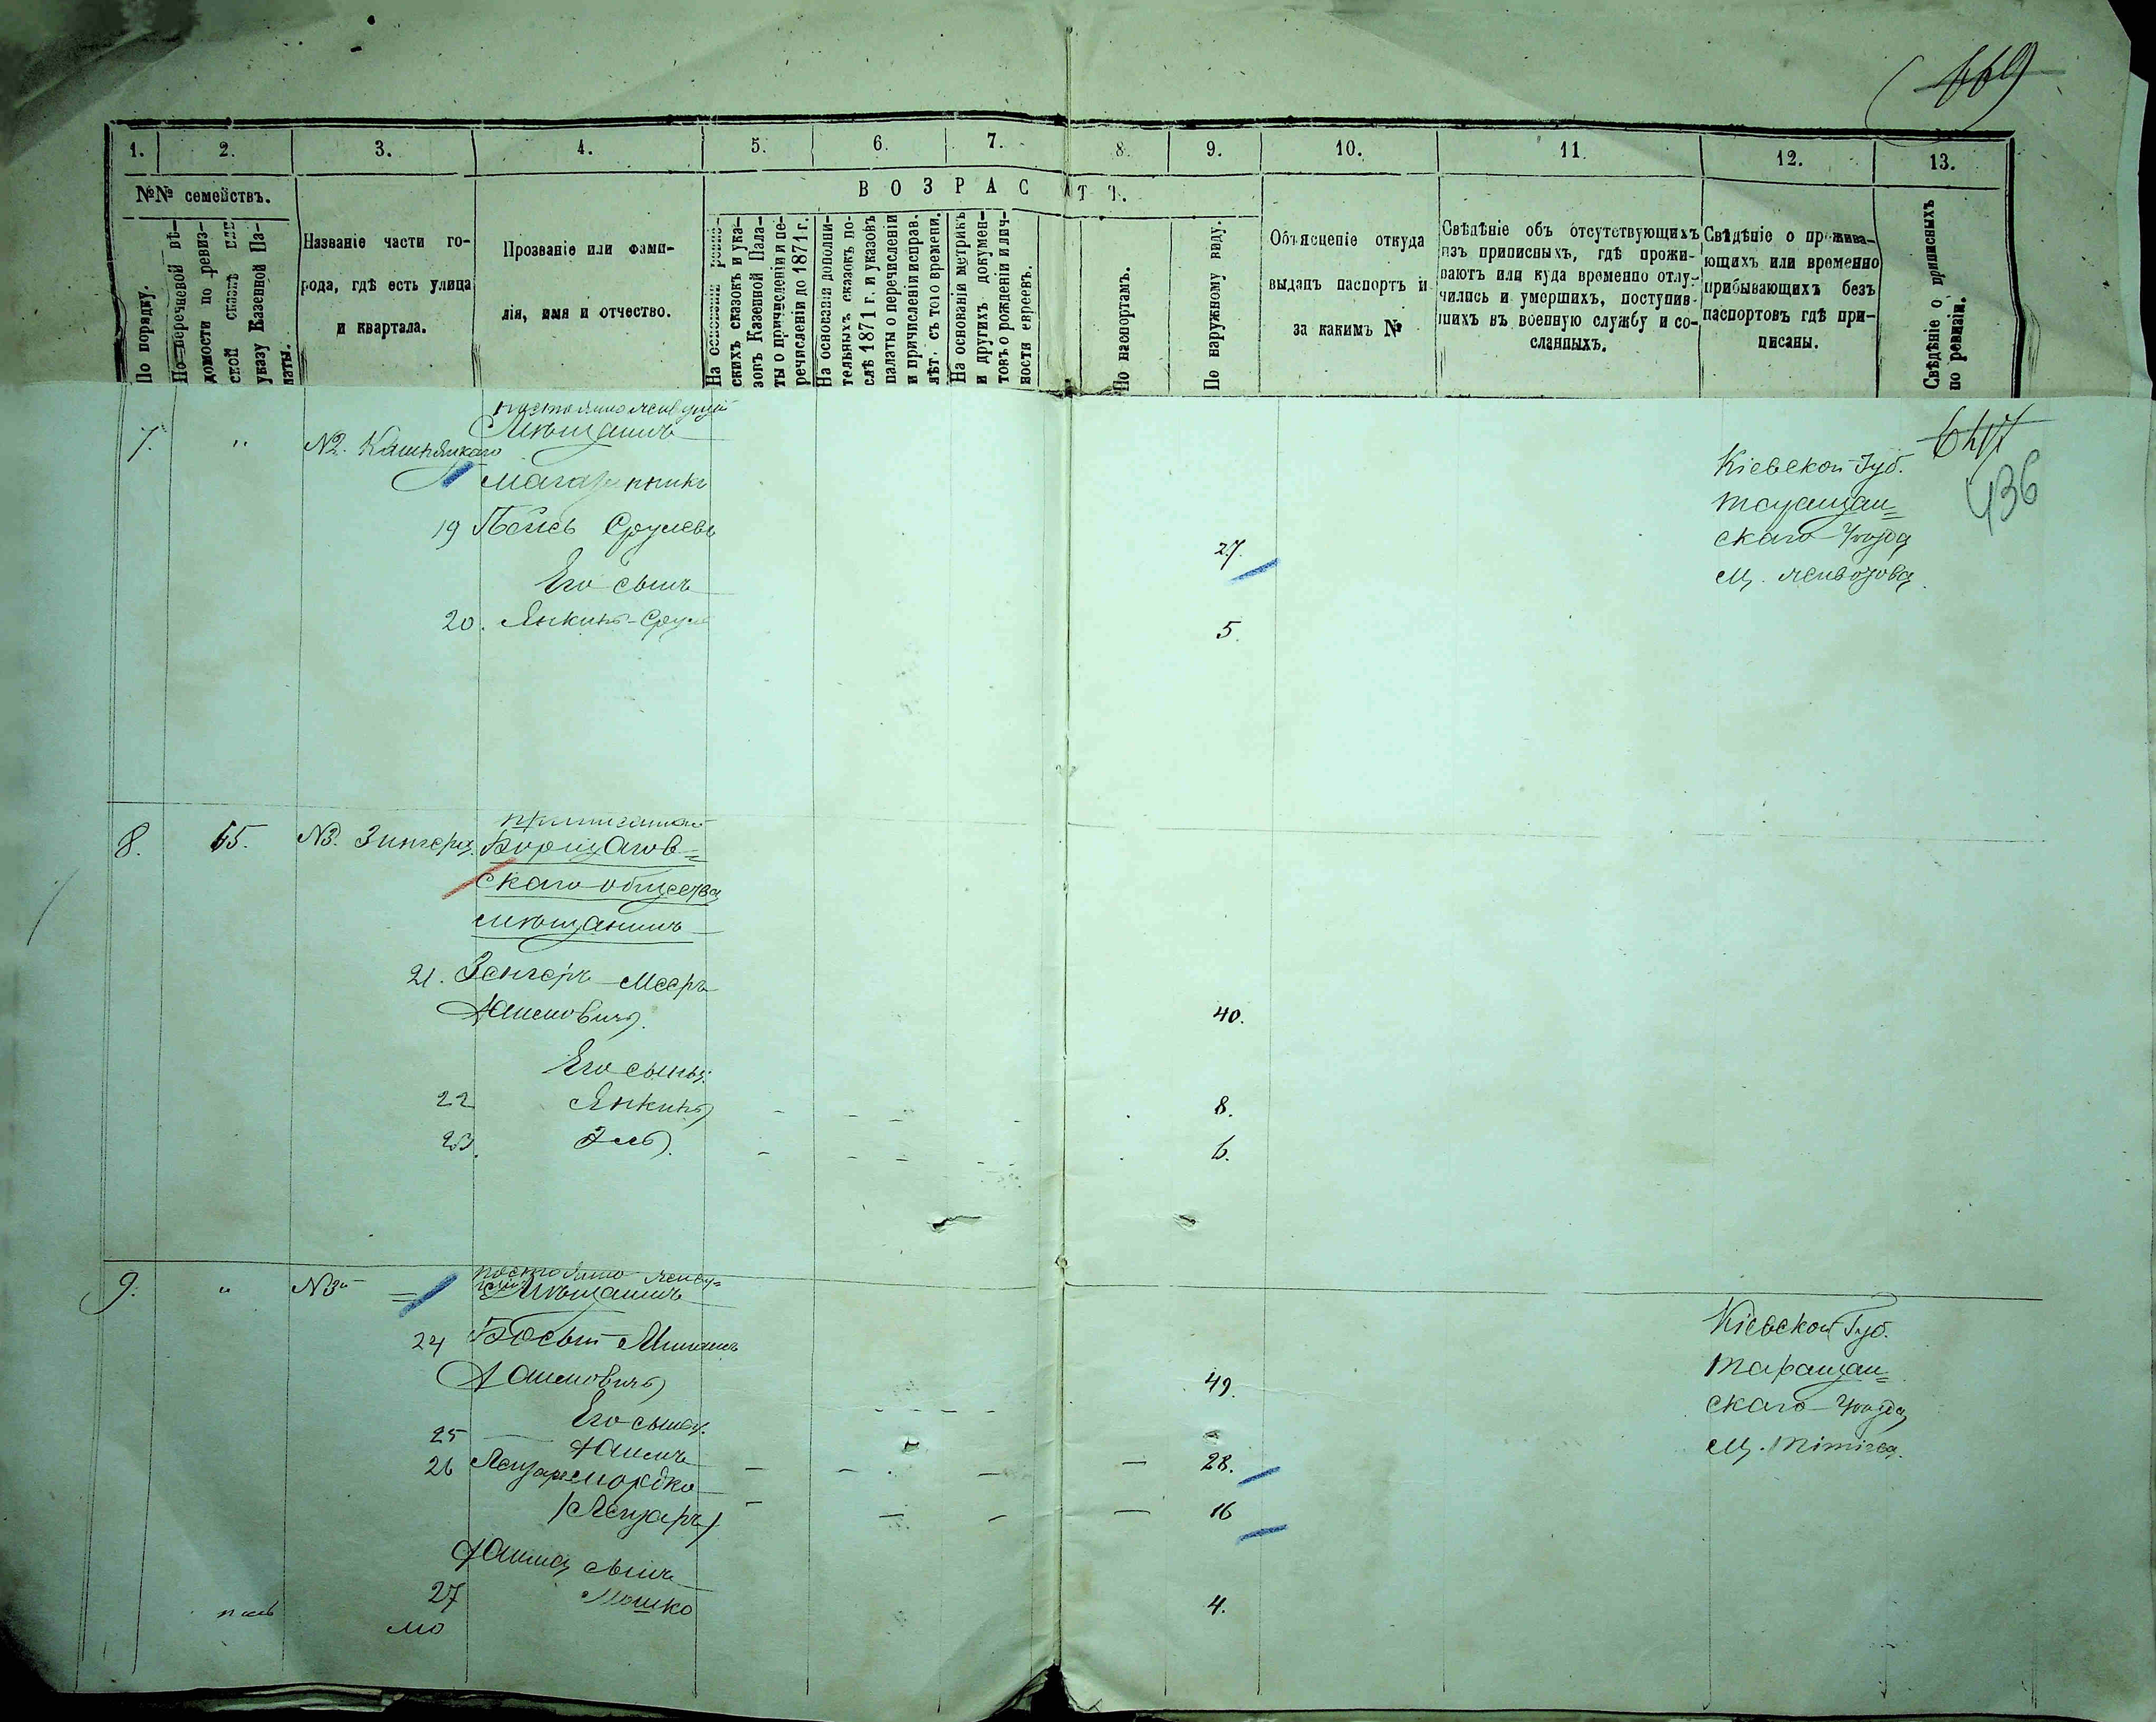 669
1. 2. 3. 4. 5. 6. 7. 8. 9. 10. 11. 12. 13.
№№ семействъ.
По порядку.
По перечневой вѣ-
домости по ревиз-
ской сказкѣ или
указу Казенной Па-
латы.
Названіе части го-
рода, гдѣ есть улица
и квартала.
Прозваніе или фами-
лія, имя и отчество.
ВОЗРАСТЪ.
На основаніи ревиз-
скихъ сказокъ и ука-
зовъ Казенной Пала-
ты о причисленіи и пе-
речисленіи до 1871 г.
На основаніи дополни-
тельныхъ сказокъ по-
слѣ 1871 г. и указовъ
палаты о перечисленіи
и причисленіи исправ.
лѣт. съ того времени.
На основаніи метрикъ
и другихъ докумен-
товъ о рожденіи и лич-
ности евреевъ.
По паспортамъ.
По наружному виду.
Объясненіе откуда
выданъ паспортъ и
за какимъ №
Свѣдѣніе объ отсутствующихъ
изъ приписныхъ, гдѣ прожи-
ваютъ или куда временно отлу-
чились и умершихъ, поступив-
шихъ въ военную службу и со-
сланныхъ.
Свѣдѣніе о прожива-
ющихъ или временно
прибывающихъ безъ
паспортовъ гдѣ при-
писаны.
Свѣдѣніе о приписныхъ
по ревизіи.
436
7. " №2.
постоянно живущій
Мѣщанинъ
19 Срулевъ 27.
Его сынъ
20. Янкипъ-Сруль 5.
Кіевской Губ.
Таращан=
скаго Уѣзда
М. Жывотова
8. 65. №3. Зингера
приписанный
Борщагов=
скаго общества
мѣщанинъ
21. Зенгеръ Мееръ
Хаимовичъ. 40.
Его сынья:
22 Янкипъ 8.
23. 6.
9. " №3й =
постоянно живу=
щій Мѣщанинъ
24
Хаимовичъ 49.
Его сынья:
25 Хаимъ 28.
26 Мордко
/Лейзаръ/ 16
Хаима сынъ
27 Мошко 4.
Кіевской Губ.
Таращан=
скаго Уѣзда
М. Тітіева.